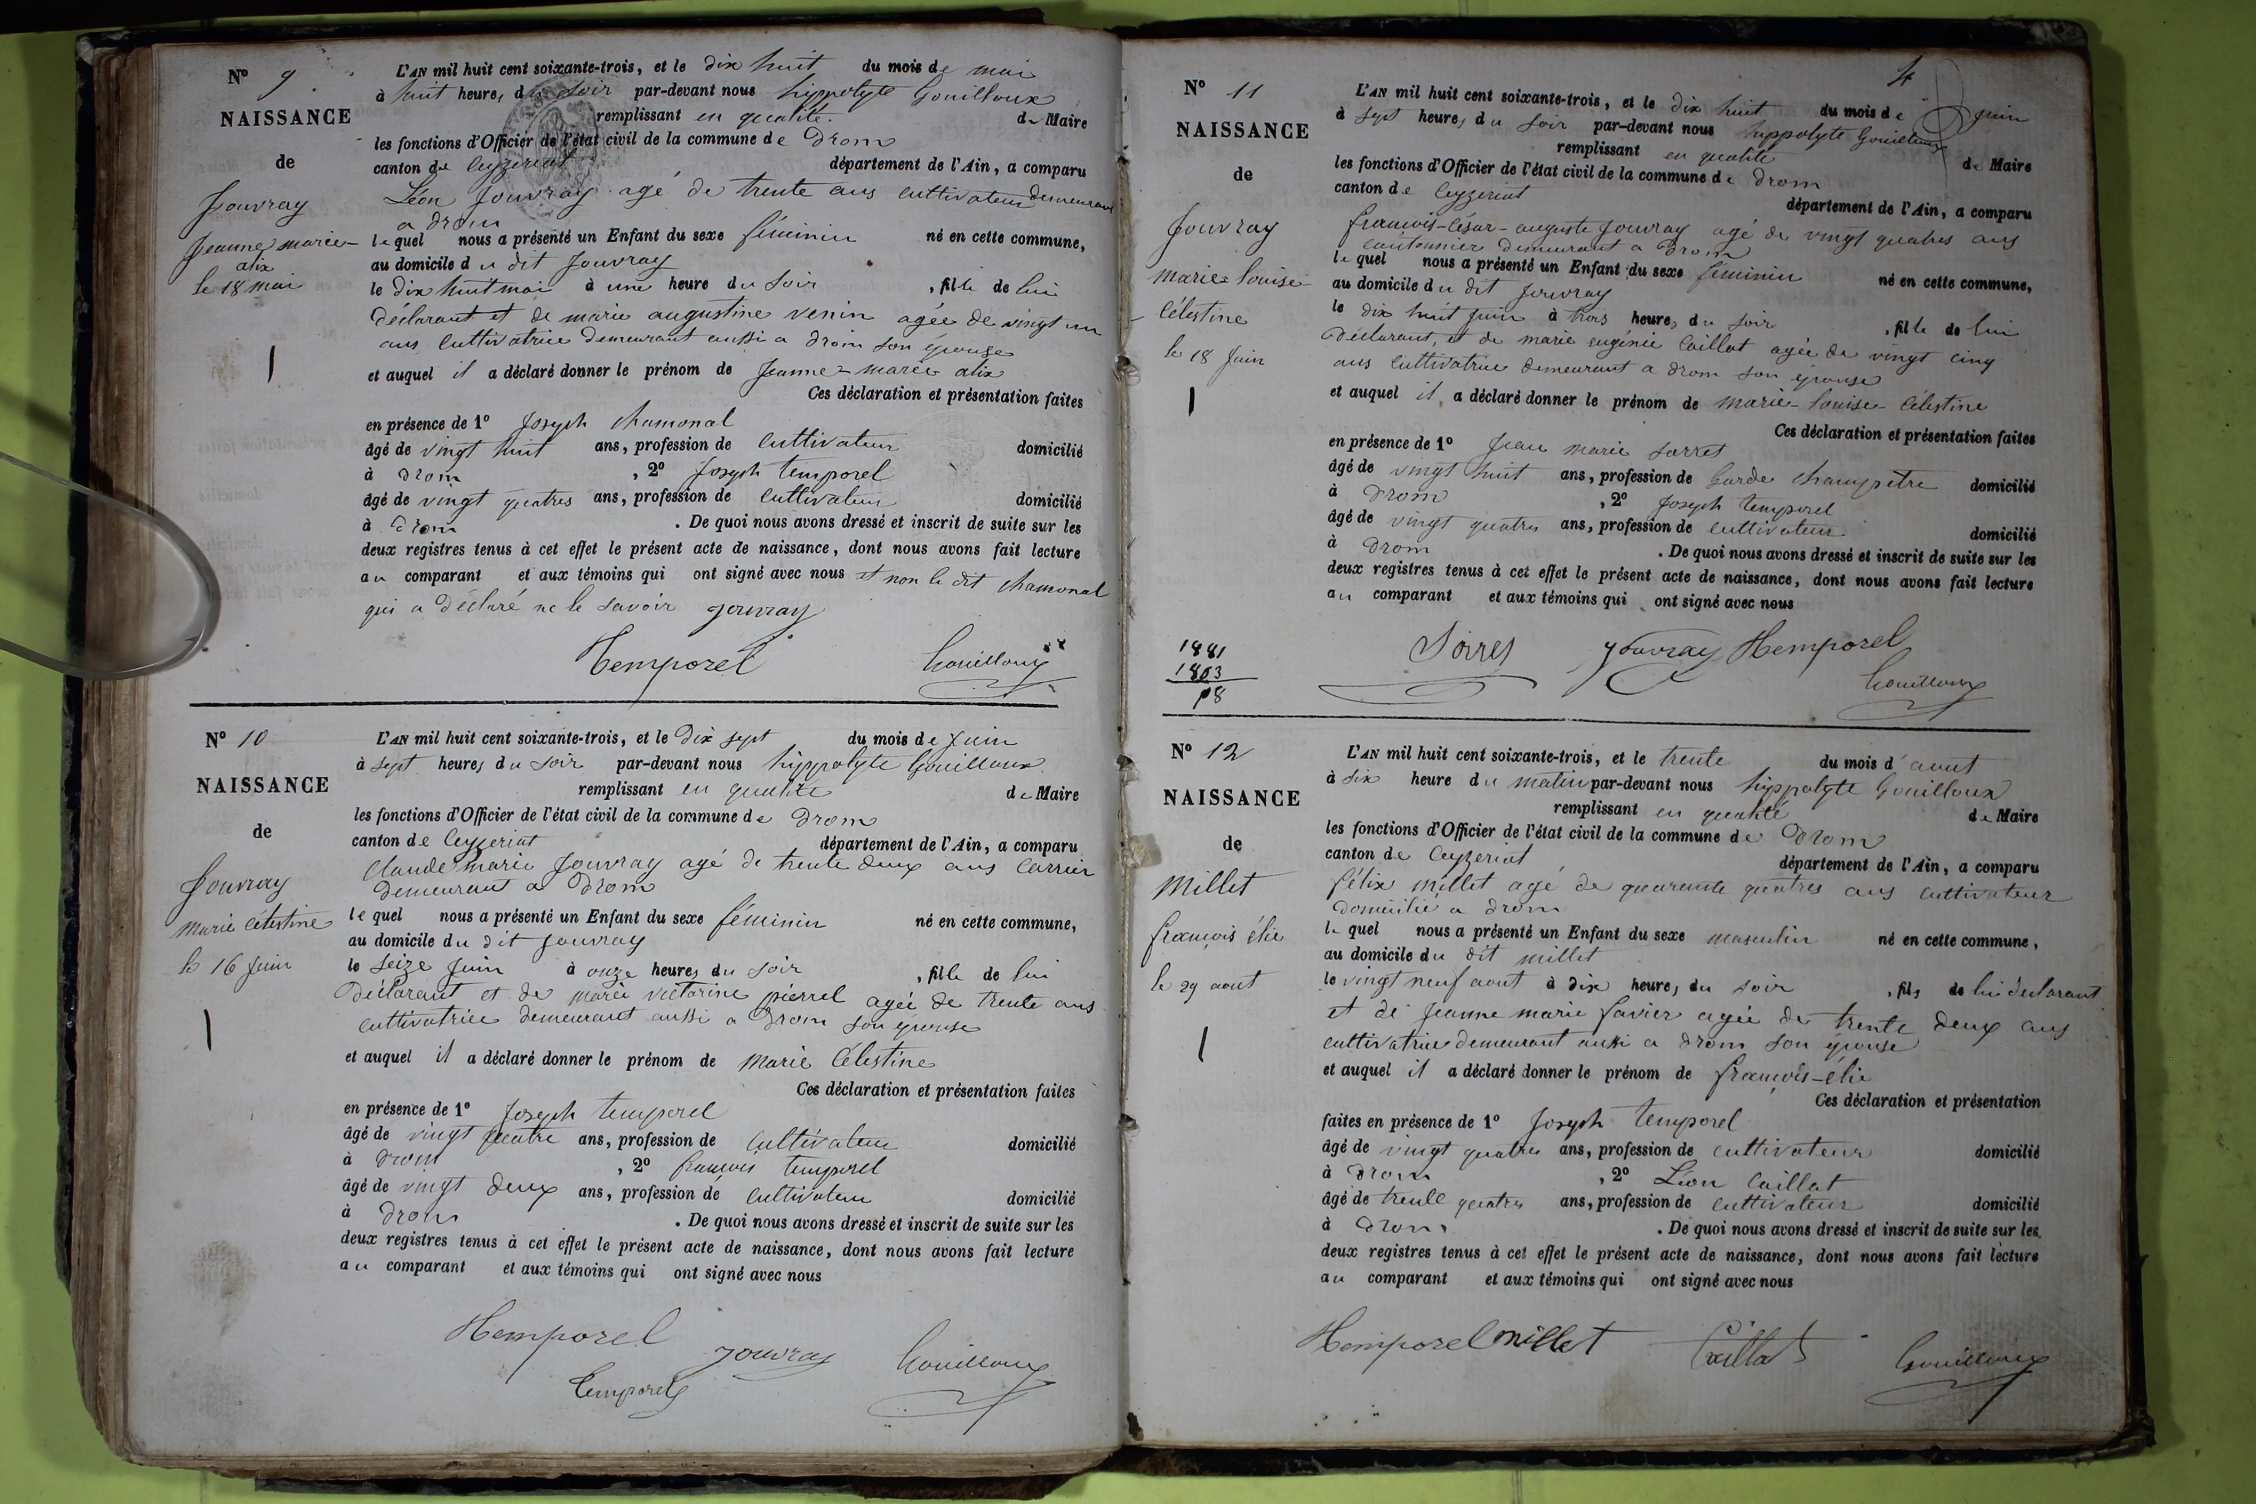 N° 9
NAISSANCE
de
Jouvray
Jeanne marie-
alix
le 18 mai
L'AN mil huit cent soixante-trois, et le dix huit du mois de mai
à huit heures du soir par-devant nous hippolyte Gouilloux
remplissant en qualité de Maire
les fonctions d'Officier de l'état civil de la commune de Drom
canton de Ceyzeriat département de l'Ain, a comparu
Léon Jouvray agé de trente ans cultivateur demeurant
a drom
lequel nous a présenté un Enfant du sexe féminin né en cette commune,
au domicile du dit Jouvray
le dix huit mai à une heure du soir, fille de lui
déclarant et de marie augustine venin agée de vingt un
ans cultivatrice demeurant aussi a drom son épouse
et auquel il a déclaré donner le prénom de Jeanne-marie alix
Ces déclaration et présentation faites
en présence de 1° Joseph chamonal
âgé de vingt huit ans, profession de cultivateur domicilié
à drom, 2° Joseph temporel
âgé de vingt quatres ans, profession de cultivateur domicilié
à drom. De quoi nous avons dressé et inscrit de suite sur les
deux registres tenus à cet effet le présent acte de naissance, dont nous avons fait lecture
au comparant et aux témoins qui ont signé avec nous et non le dit chamonal
qui a déclaré ne le savoir Jouvray
Temporel Gouilloux
N° 10
NAISSANCE
de
Jouvray
marie célestine
le 16 Juin
L'AN mil huit cent soixante-trois, et le dix sept du mois de Juin
à sept heures du soir par-devant nous hippolyte Gouilloux
remplissant en qualité de Maire
les fonctions d'Officier de l'état civil de la commune de Drom
canton de Ceyzeriat département de l'Ain, a comparu
Claude marie Jouvray agé de trente deux ans carrier
demeurant a Drom
lequel nous a présenté un Enfant du sexe féminin né en cette commune,
au domicile du dit Jouvray
le seize Juin à onze heures du soir, fille de lui
déclarant et de marie victorine pierrel agée de trente ans
cultivatrice demeurant aussi a Drom son épouse
et auquel il a déclaré donner le prénom de marie Célestine
Ces déclaration et présentation faites
en présence de 1° Joseph temporel
âgé de vingt quatre ans, profession de cultivateur domicilié
à drom, 2° francois temporel
âgé de vingt deux ans, profession de cultivateur domicilié
à drom. De quoi nous avons dressé et inscrit de suite sur les
deux registres tenus à cet effet le présent acte de naissance, dont nous avons fait lecture
au comparant et aux témoins qui ont signé avec nous
Temporel Jouvray Gouilloux
Temporel
4
N° 11
NAISSANCE
de
Jouvray
marie-louise-
Célestine
le 18 Juin
L'AN mil huit cent soixante-trois, et le dix huit du mois de Juin
à sept heures du soir par-devant nous hippolyte Gouilloux
remplissant en qualité de Maire
les fonctions d'Officier de l'état civil de la commune de Drom
canton de Ceyzeriat département de l'Ain, a comparu
francois-César-auguste Jouvray agé de vingt quatres ans
cantonnier demeurant a Drom
lequel nous a présenté un Enfant du sexe féminin né en cette commune,
au domicile du dit Jouvray
le dix huit Juin à trois heures du soir, fille de lui
déclarant, et de marie eugénie Caillat agée de vingt cinq
ans cultivatrice demeurant a drom son épouse
et auquel il a déclaré donner le prénom de marie-louise-Célestine
Ces déclaration et présentation faites
en présence de 1° Jean marie sorret
âgé de vingt huit ans, profession de Garde champêtre domicilié
à Drom, 2° Joseph temporel
âgé de vingt quatres ans, profession de cultivateur domicilié
à drom. De quoi nous avons dressé et inscrit de suite sur les
deux registres tenus à cet effet le présent acte de naissance, dont nous avons fait lecture
au comparant et aux témoins qui ont signé avec nous
1881
1863
18
Jouvray Temporel
Gouilloux
N° 12
NAISSANCE
de
Millet
francois élie
le 29 aout
L'AN mil huit cent soixante-trois, et le trente du mois d'aout
à six heure du matin par-devant nous hippolyte Gouilloux
remplissant en qualité de Maire
les fonctions d'Officier de l'état civil de la commune de Drom
canton de Ceyzeriat département de l'Ain, a comparu
félix millet agé de quarente quatres ans cultivateur
domicilié a drom
lequel nous a présenté un Enfant du sexe masculin né en cette commune,
au domicile du dit millet
le vingt neuf aout à dix heures du soir, fils de lui déclarant
et de Jeanne marie favier agée de trente deux ans
cultivatrice demeurant aussi a drom son épouse
et auquel il a déclaré donner le prénom de francois-élie
Ces déclaration et présentation
faites en présence de 1° Joseph temporel
âgé de vingt quatres ans, profession de cultivateur domicilié
à Drom, 2° Léon Caillat
âgé de trente quatres ans, profession de cultivateur domicilié
à Drom. De quoi nous avons dressé et inscrit de suite sur les
deux registres tenus à cet effet le présent acte de naissance, dont nous avons fait lecture
au comparant et aux témoins qui ont signé avec nous
Temporel millet Caillat Gouilloux